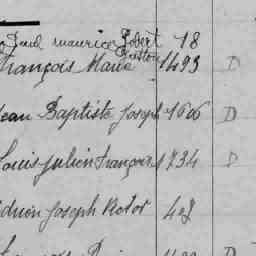 Paul maurice Robert 18
Gaston
François Marie 1493 D
Jean Baptiste Joseph 1606 D
Louis Julien François 1734 D
Adrien Joseph Victor 402